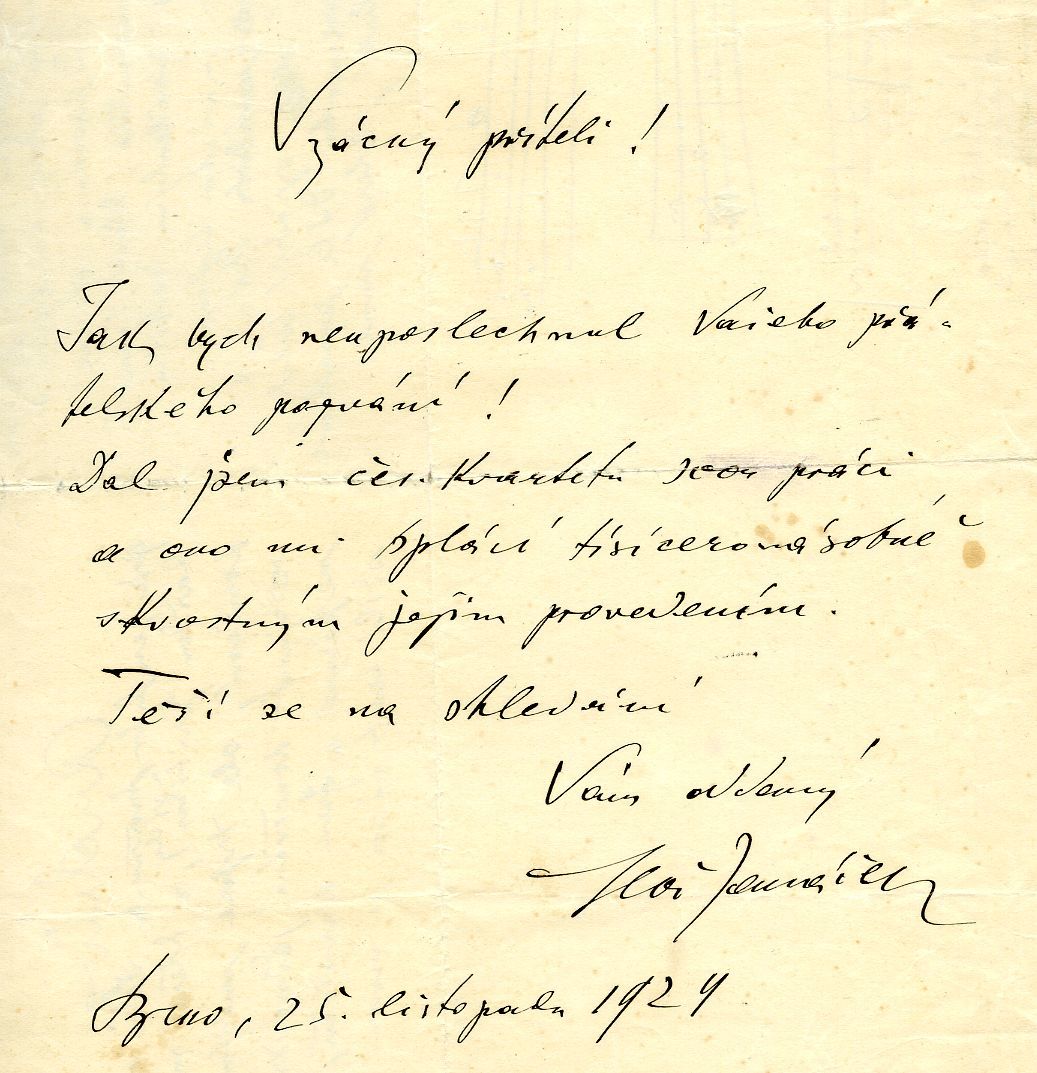 Vzácný příteli!
Jak bych neuposlechnul Vašeho přá-
telského pozvání!
Dal jsem čes. kvartetu svou práci
a ono mi splácí tisíceronásobně
skvostným jejím provedením.
Těší se na shledání
Vám oddaný
Leoš Janáček
Brno, 25. listopadu 1924